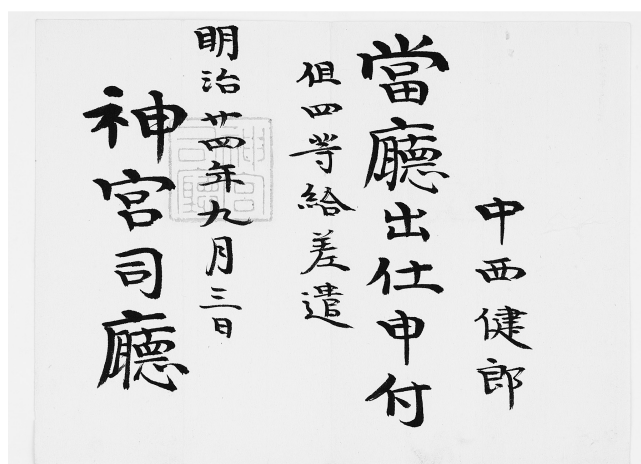 中西健郎
當廳出仕申付
但四等給差遣
明治廿四年九月三日
神宮司廳